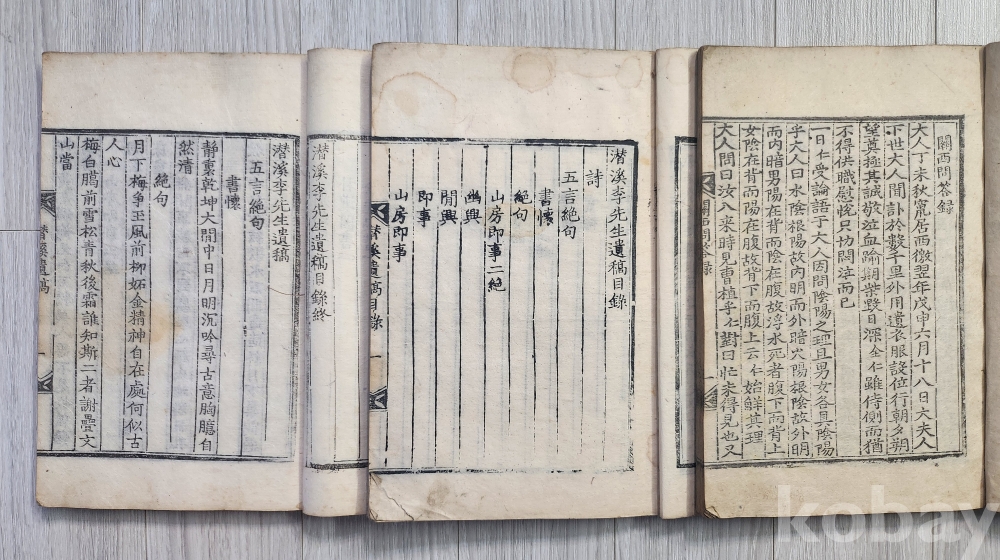 關西問答錄
大人丁未秋竄居西徼翌年戊申六月十八日大夫人
下世大人聞訃於數千里外用遺衣服設位行朝夕朔
望奠極其誠敬泣血踰期柴毀日深全仁雖侍側而猶
不得供職慰悅只切悶泣而已
一日仁受論語于大人因問陰陽之理且男女各具陰陽
乎大人曰水陰根陽故內明而外暗火陽根陰故外明
而內暗男陽在背而陰在腹故浮水死者腹下而背上
女陰在背而陽在腹故背下而腹上云仁始鮮其理
大人問曰汝八來時見曹植乎仁對曰忙未得見也又
關西問答錄
潜溪李先生遺稿目錄
詩
五言絶句
書懷
絶句
山房即事二絶
幽興
閒興
即事
山房即事
潜溪遺稿目錄
一
潜溪李先生遺稿目錄終
潜溪李先生遺稿
五言絶句
書懷
靜裏乾坤大閒中日月明沉吟尋古意胸臆自
然清
絶句
月下梅爭玉風前柳妬金精神自在處何似古
人心
梅白臈前雪松青秋後霜誰知斯二者謝疊文
山當
潜溪遺稿
一
kobay